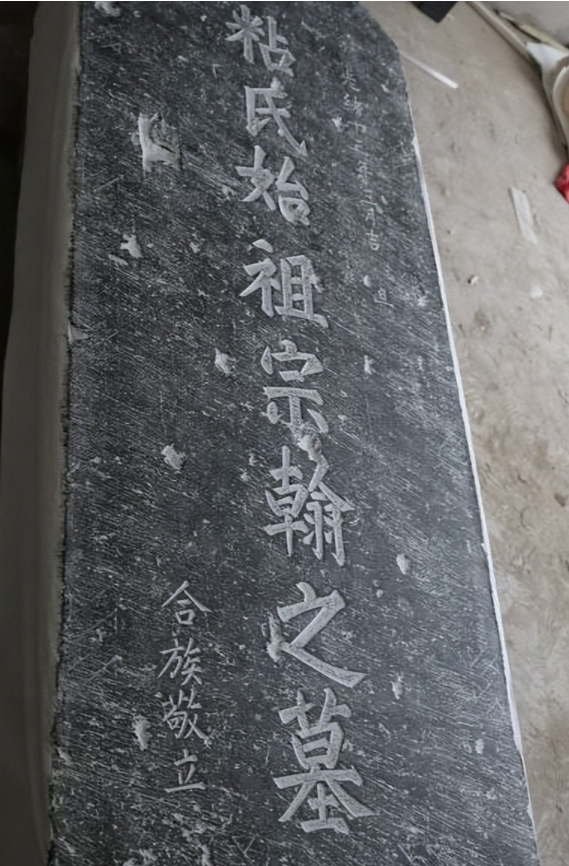 光绪十二年三月吉
粘氏始祖宗翰之墓
合族敬立